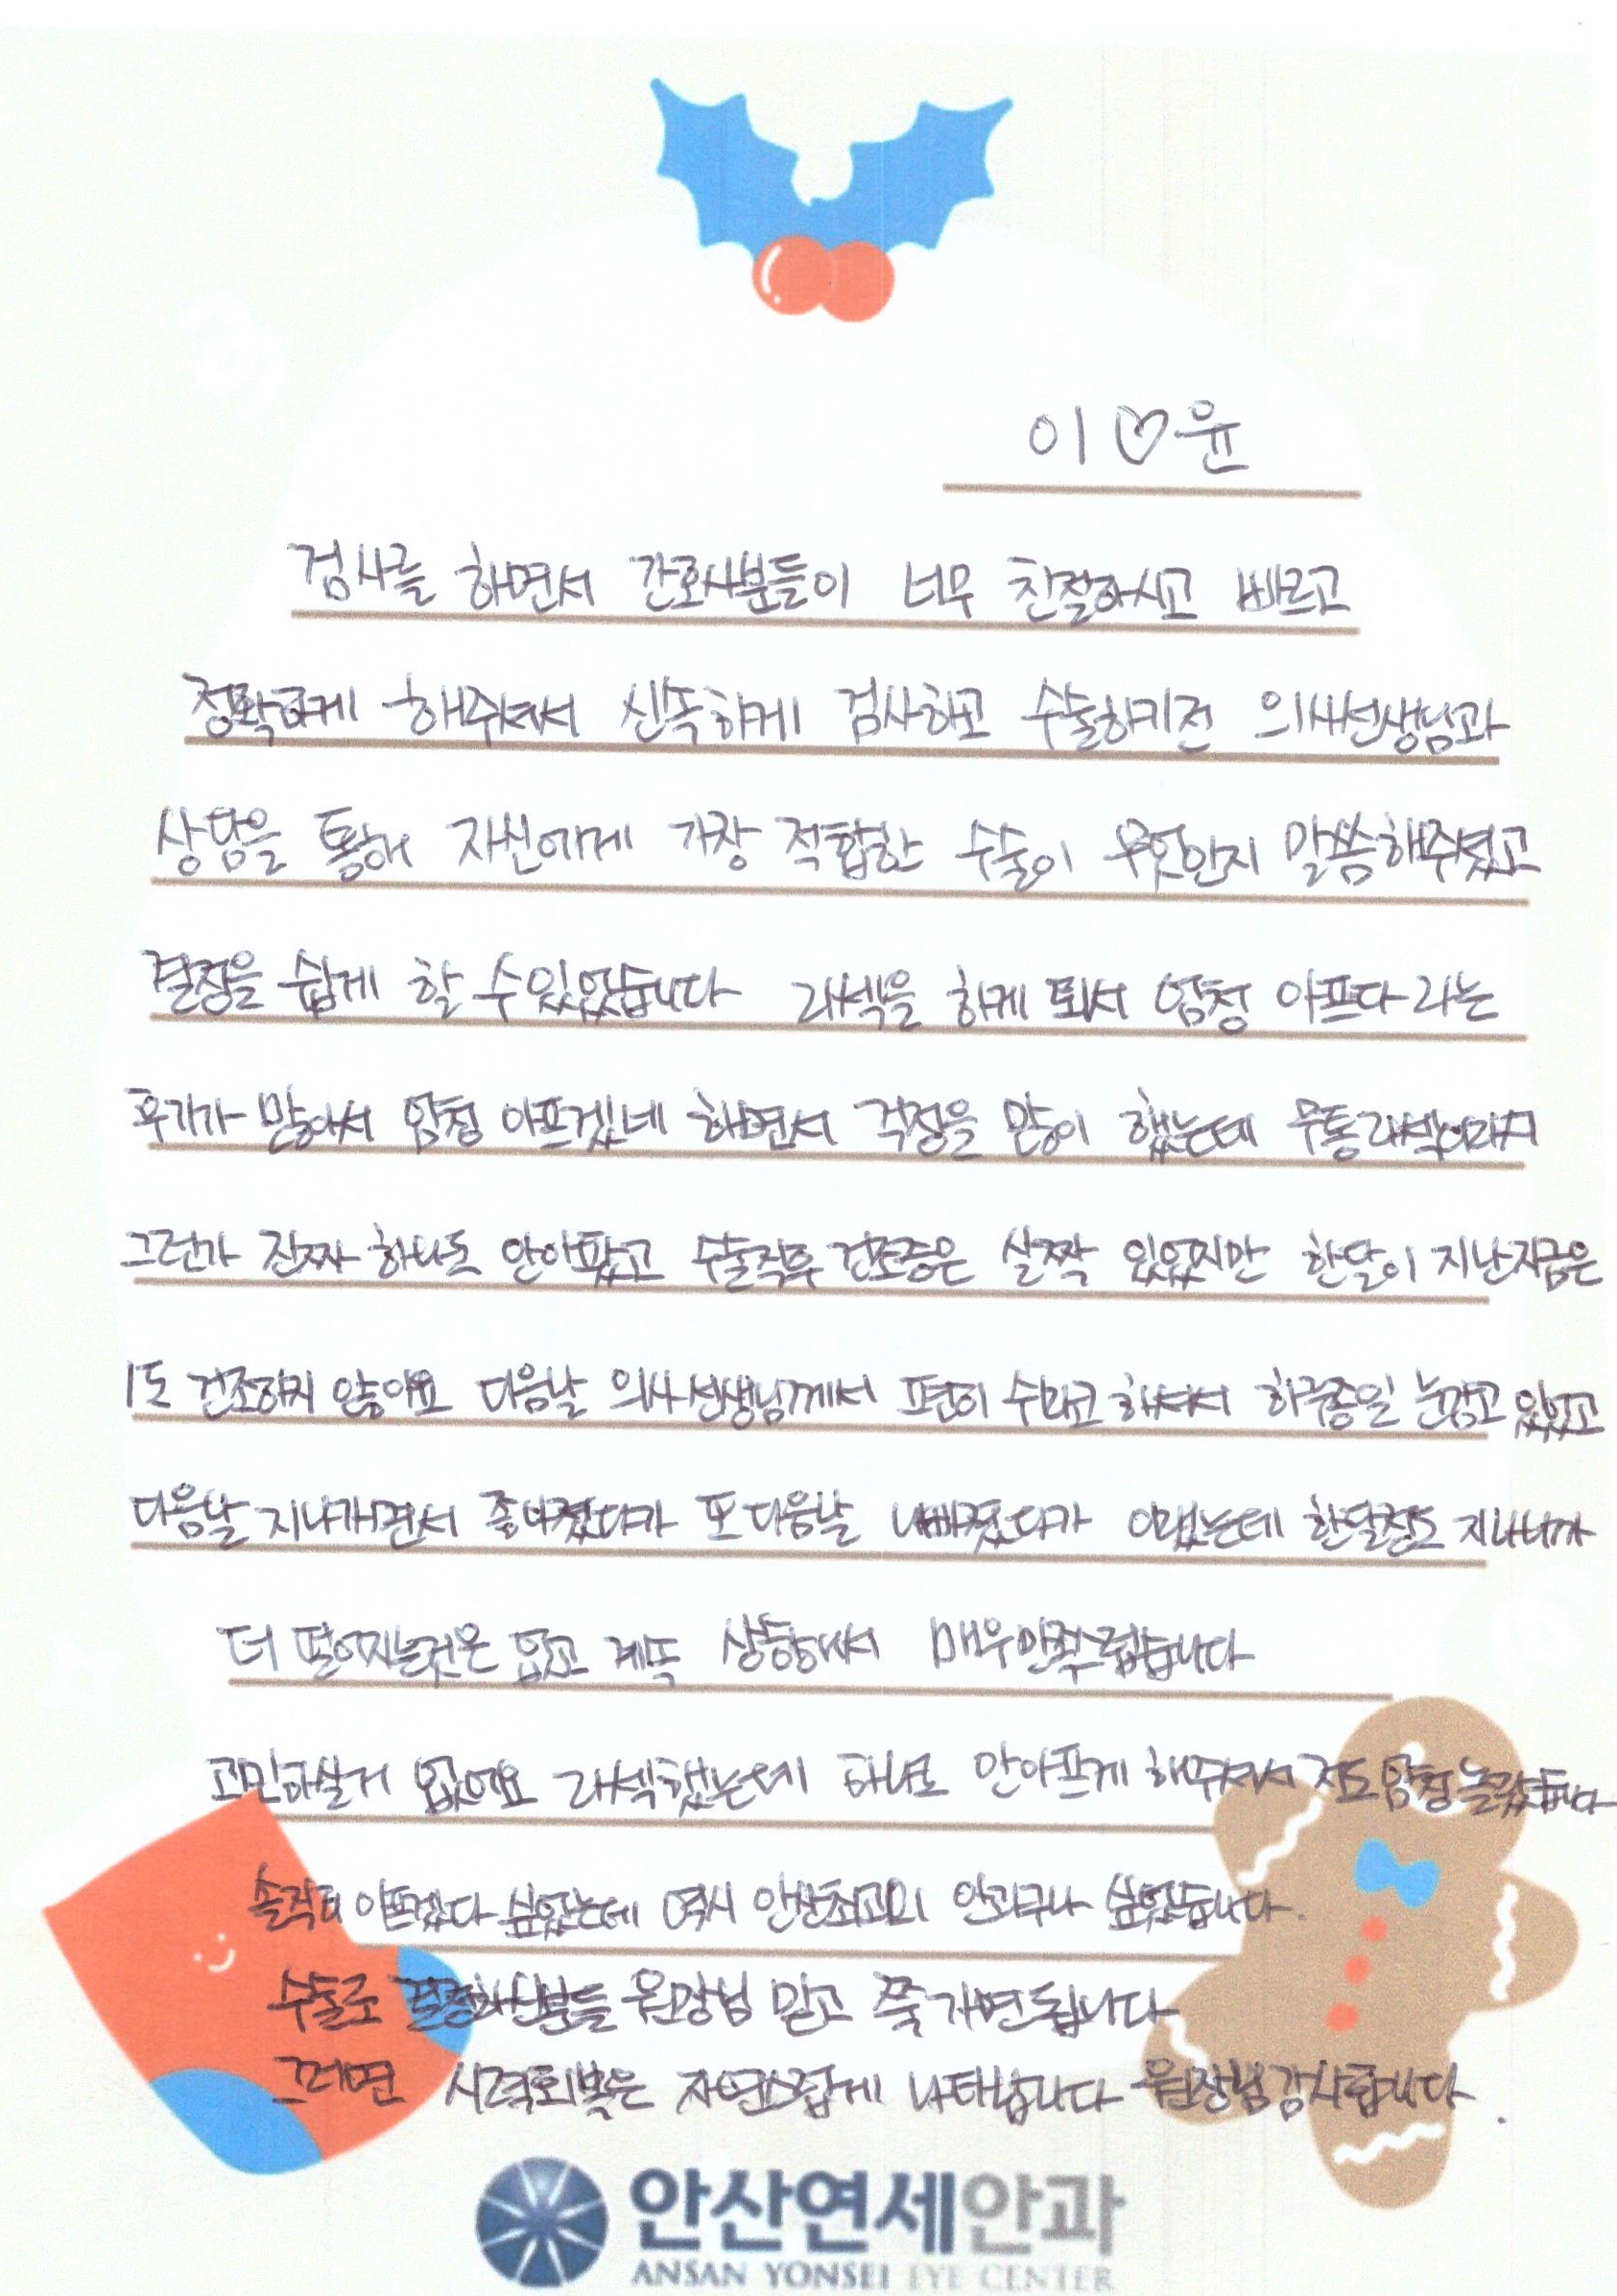 이♡윤
검사를 하면서 간호사분들이 너무 친절하시고 빠르고
정확하게 해주셔서 신속하게 검사하고 수술하기전 의사선생님과
상담을 통해 자신에게 가장 적합한 수술이 무엇인지 말씀해주셨고
결정을 쉽게 할 수있었습니다 라섹을 하게 되서 엄청 아프다라는
후기가 많아서 엄청 아프겠네 하면서 걱정을 많이 했는데 무통라섹이라서
그런가 진짜 하나도 안아팠고 수술직후 건조증은 살짝 있었지만 한달이 지난지금은
1도 건조하지 않아요 다음날 의사선생님께서 편히 쉬라고 하셔서 하루종일 눈감고 있었고
다음날 지나가면서 좋아졌다가 또 다음날 나빠졌다가 이랬는데 한달정도 지나니까
더 떨어지는것은 없고 계속 상향되서 매우만족스럽습니다
고민하실거 없어요 라섹했는데 하나도 안아프게 해주셔서 저도 엄청 놀랐습니다
솔직히 아프겠다 싶었는데 역시 안산최고의 안과구나 싶었습니다.
수술로 결정하신분들 원장님 믿고 쭉 가면됩니다
그러면 시력회복은 자연스럽게 나타납니다 원장님감사합니다.
안산연세안과
ANSAN YONSEI EYE CENTER